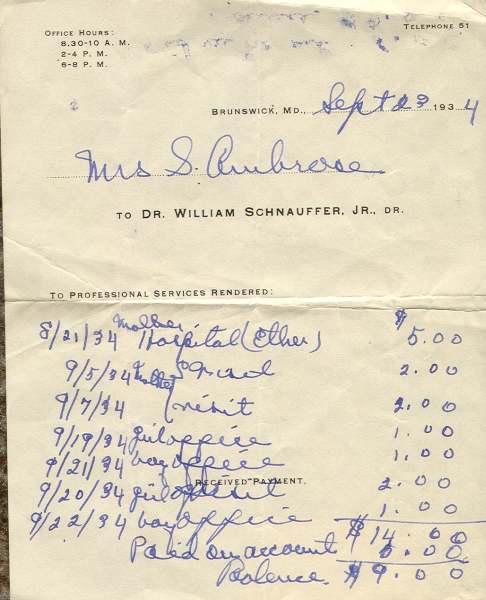 OFFICE HOURS:
8.30-10 A. M.
2-4 P. M.
6-8 P. M.
TELEPHONE 51
BRUNSWICK, MD., Sept 23 1934
Mrs S. Ambrose
TO DR. WILLIAM SCHNAUFFER, JR., DR.
TO PROFESSIONAL SERVICES RENDERED:
8/21/34 Mother Hospital (Ether) $ 5.00
9/5/34 Mother 2.00
9/7/34 visit 2.00
9/19/34 girl office 1.00
9/21/34 boy office 1.00
RECEIVED PAYMENT.
9/20/34 girl visit 2.00
9/22/34 boy office 1.00
$14.00
Paid on account 5.00
Balence $9.00